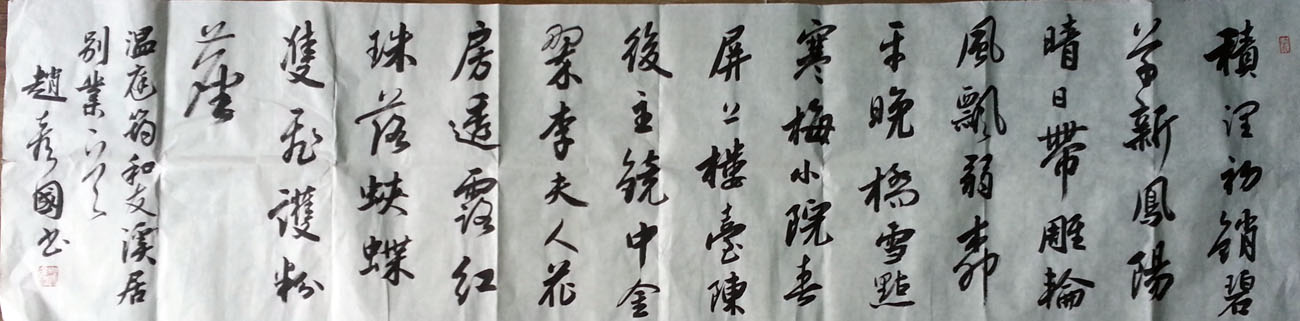 積潤初銷碧
草新鳳陽
晴日帶雕輪
風飄弱柳
平晚橋雪點
寒梅小院春
屏上樓臺陳
後主鏡中金
翠李夫人花
房透露红
珠落蛺蝶
雙飛護粉
塵
温庭筠和友溪居
别業
趙秀國书